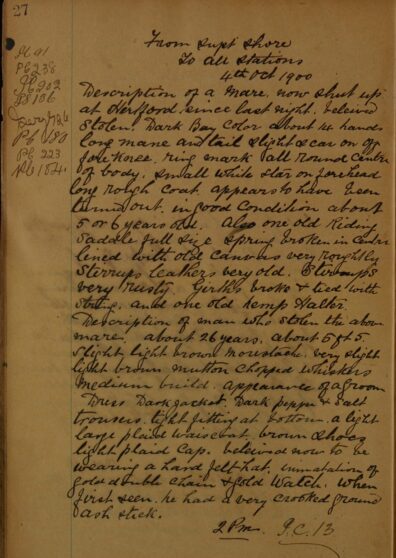 27
From Supt Shore
To all Stations
4th Oct 1900
PC 238
PC 202
PC 180
PC 223
Description of a mare, now shut up
at Hertford, since last night, beleived
Stolen. Dark Bay Color about 14 hands
long mane and tail slight scar on off
fore knee, ring mark all round Centre
of body, small white star on forehead
long rough coat, appears to have been
turned out, in good Condition about
5 or 6 years old. Also one old Riding
Saddle full size Spring broken in Centre
lined with old Canvas very roughly
Sterrups leathers very old. Sterrups
very rusty. Girths broke & tied with
string, and one old hemp Halter.
Description of man who stolen the above
mare, about 26 years, about 5 ft 5.
Slight light brown moustache, very slight
light brown mutton Chopped whiskers
medium build, appearance of a groom
Dress Dark Jacket, Dark pepper & salt
trousers, tight fitting at bottom, a light
large plaid waiscoat, brown shoes
light plaid Cap. beleived now to be
wearing a hard felt hat, immatation of
gold double chain & gold watch. when
first seen, he had a very crooked ground
ash stick.
2 Pm P.C. 13